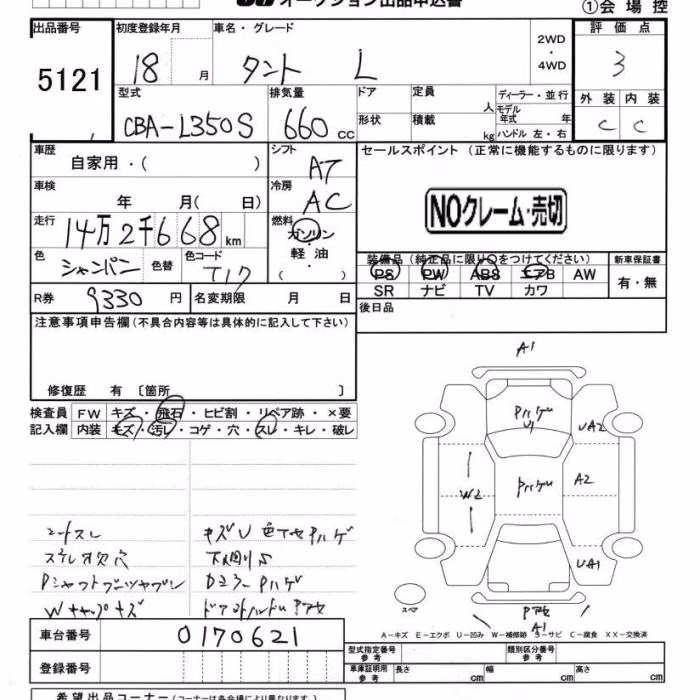 オークション出品申込書
①会場控
出品番号 初度登録年月 車名・グレード 評価点
5121 18 月 タント L 2WD・4WD 3
型式 排気量 ドア 定員 人 ディーラー・並行 外装 内装
CBA-L350S 660 cc 形状 積載 kg モデル年式 年 ハンドル 左・右 C C
車歴 自家用・( ) シフト AT セールスポイント (正常に機能するものに限ります)
車検 年 月( 日) 冷房 AC
NOクレーム・売切
走行 14万2千668 km 燃料 ガソリン・軽油・( )
色 シャンパン 色替 色コード T17
装備品 (純正品に限り○をつけてください) 新車保証書
PS PW ABS エアB AW 有・無
SR ナビ TV カワ
R券 9330 円 名変期限 月 日
後日品
注意事項申告欄(不具合内容等は具体的に記入して下さい)
修復歴 有 〔箇所 〕
検査員 FW キズ・飛石・ヒビ割・リペア跡・×要
記入欄 内装 キズ・汚レ・コゲ・穴・スレ・キレ・破レ
A1
U1
UA2
A2
W2
UA1
スペア
A1
シートスレ
Wキャップキズ
A－キズ E－エクボ U－凹み W－補修跡 S－サビ C－腐食 XX－交換済
車台番号 0170621
登録番号
型式指定番号 参考 類別区分番号 参考
車庫証明用 参考 長さ cm 幅 cm 高さ cm
希望出品コーナー(コーナーは各会場により異なります。)